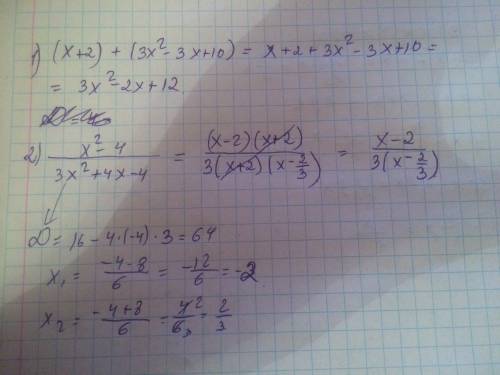 1) (x+2) + (3x²-3x+10) = x+2+3x²-3x+10 =
= 3x²-2x+12
2) x²-4 / 3x²+4x-4 = (x-2)(x+2) / 3(x+2)(x-2/3) = x-2 / 3(x-2/3)
D = 16-4·(-4)·3=64
x₁ = -4-8 / 6 = -12 / 6 = -2
x₂ = -4+8 / 6 = 4² / 6₃ = 2/3